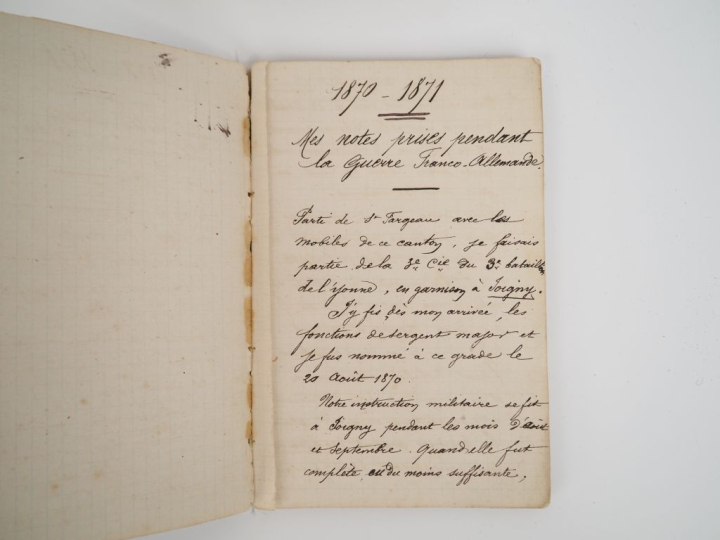 1870 - 1871
Mes notes prises pendant
la Guerre Franco-Allemande.
Parti de St Fargeau avec les
mobiles de ce canton, je faisais
partie de la 3e Cie du 3e bataillon
de l'Yonne, en garnison à Joigny.
J'y fis, dès mon arrivée, les
fonctions de sergent major et
je fus nommé à ce grade le
20 Août 1870.
Notre instruction militaire se fit
à Joigny pendant les mois d'août
et septembre. Quand elle fut
complète ou du moins suffisante,